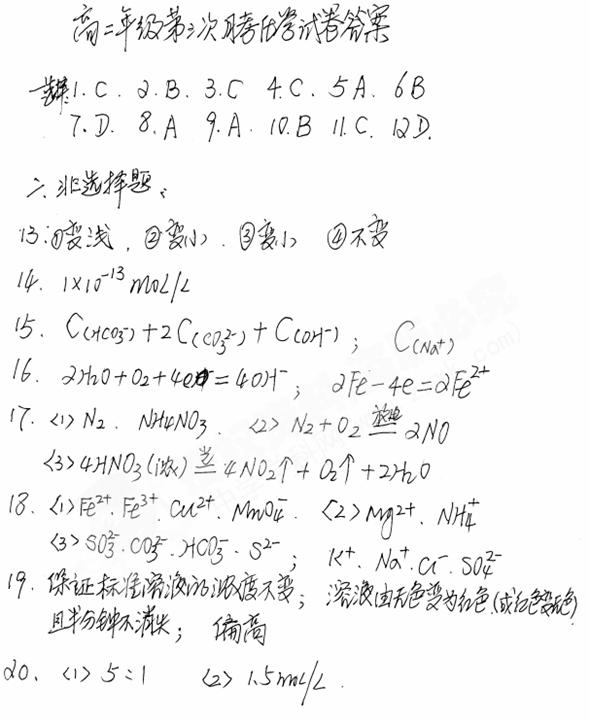 高二年级第三次月考化学试卷答案
一、选择:1.C. 2.B. 3.C 4.C. 5A. 6B
7.D. 8.A 9.A. 10.B 11.C. 12D.
二、非选择题:
13:①变浅, ②变小, ③变小 ④不变
14. 1×10⁻¹³mol/L
15. C(HCO₃⁻)+2C(CO₃²⁻)+C(OH⁻); C(Na⁺)
16. 2H₂O+O₂+4e⁻=4OH⁻; 2Fe-4e=2Fe²⁺
17. <1> N₂. NH₄NO₃. <2> N₂+O₂ 放电══ 2NO
<3> 4HNO₃(浓) 光══ 4NO₂↑+O₂↑+2H₂O
18. <1> Fe²⁺. Fe³⁺. Cu²⁺. MnO₄⁻. <2> Mg²⁺. NH₄⁺
<3> SO₃²⁻. CO₃²⁻. HCO₃⁻. S²⁻; K⁺. Na⁺. Cl⁻. SO₄²⁻
19. 保证标准溶液的浓度不变; 溶液由无色变为红色(或红色变无色)
且半分钟不消失; 偏高
20. <1> 5:1 <2> 1.5mol/L.